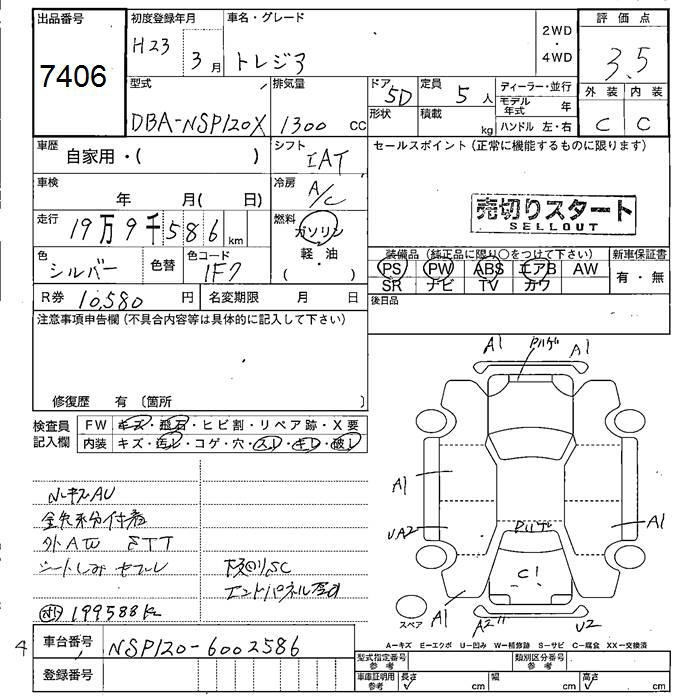 出品番号 7406
初度登録年月 H23 3月
車名・グレード トレジア
2WD・4WD
評価点 3.5
外装 C 内装 C
型式 DBA-NSP120X
排気量 1300 cc
ドア 5D
形状
定員 5人
積載 kg
ディーラー・並行
モデル年式 年
ハンドル 左・右
車歴 自家用・( )
シフト IAT
セールスポイント (正常に機能するものに限ります)
車検 年 月( 日)
冷房 A/C
売切りスタート
SELLOUT
走行 19万9千586 km
燃料 ガソリン
軽・油
( )
色 シルバー
色替
色コード 1F7
装備品 (純正品に限り○をつけて下さい)
PS PW ABS エアB AW
SR ナビ TV カワ
新車保証書
有・無
R券 10,580 円
名変期限 月 日
後日品
注意事項申告欄 (不具合内容等は具体的に記入して下さい)
修復歴 有 〔箇所 〕
検査員記入欄
FW キズ・飛石・ヒビ割・リペア跡・X要
内装 キズ・汚レ・コゲ・穴・スレ・キレ・破レ
小キズAU
外AW
シートしみ
下回りSC
199588K
A1 A1
A1
UA2
A1
C1
A1
A2
U2
スペア
A-キズ E-エクボ U-凹み W-補修跡 S-サビ C-腐食 XX-交換済
4
車台番号 NSP120-6002586
登録番号
型式指定番号 参考
類別区分番号 参考
車庫証明用 参考 長さ cm 幅 cm 高さ cm